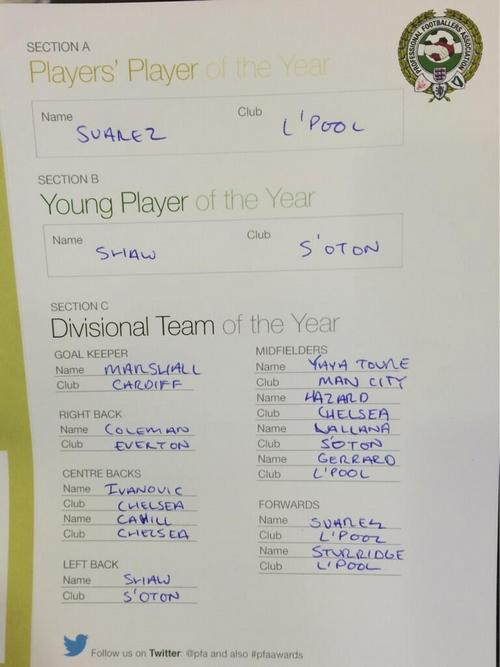 PROFESSIONAL FOOTBALLERS ASSOCIATION
SECTION A
Players' Player of the Year
Name SUAREZ Club L'POOL
SECTION B
Young Player of the Year
Name SHAW Club S'OTON
SECTION C
Divisional Team of the Year
GOAL KEEPER
Name MARSHALL
Club CARDIFF
RIGHT BACK
Name COLEMAN
Club EVERTON
CENTRE BACKS
Name IVANOVIC
Club CHELSEA
Name CAHILL
Club CHELSEA
LEFT BACK
Name SHAW
Club S'OTON
MIDFIELDERS
Name YAYA TOURE
Club MAN CITY
Name HAZARD
Club CHELSEA
Name LALLANA
Club S'OTON
Name GERRARD
Club L'POOL
FORWARDS
Name SUAREZ
Club L'POOL
Name STURRIDGE
Club L'POOL
Follow us on Twitter: @pfa and also #pfaawards